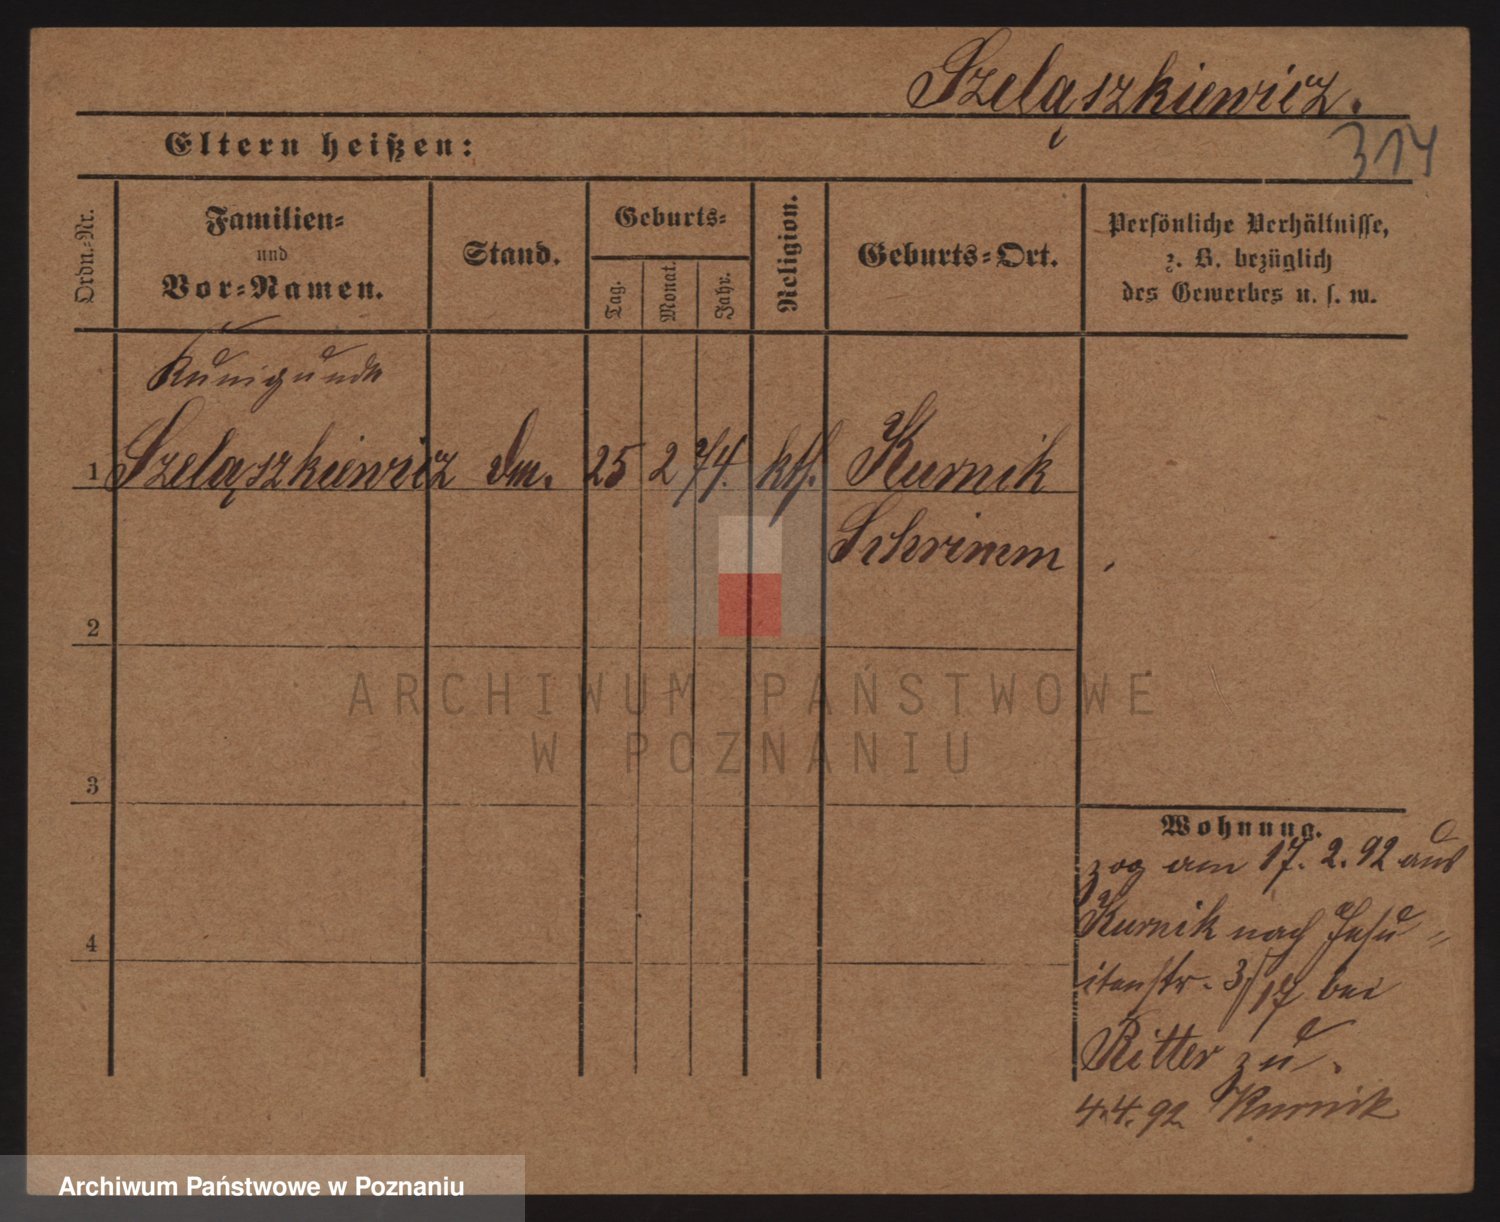 Szelążkiewicz.
314
Eltern heißen:
Ordn.=Nr.
Familien=
und
Vor=Namen.
Stand.
Geburts=
Tag.
Monat.
Jahr.
Religion.
Geburts=Ort.
Persönliche Verhältnisse,
z. B. bezüglich
des Gewerbes u. s. w.
Kunigunde
1 Szeląszkiewicz 25 2 74. kth. Kurnik
Schrimm
2
3
4
Wohnung.
zog am 17. 2. 92 aus
Kurnik nach Jesu=
itenstr. 3/17 bei
Ritter zu.
4.4.92 Kurnik
ARCHIWUM PAŃSTWOWE
W POZNANIU
Archiwum Państwowe w Poznaniu